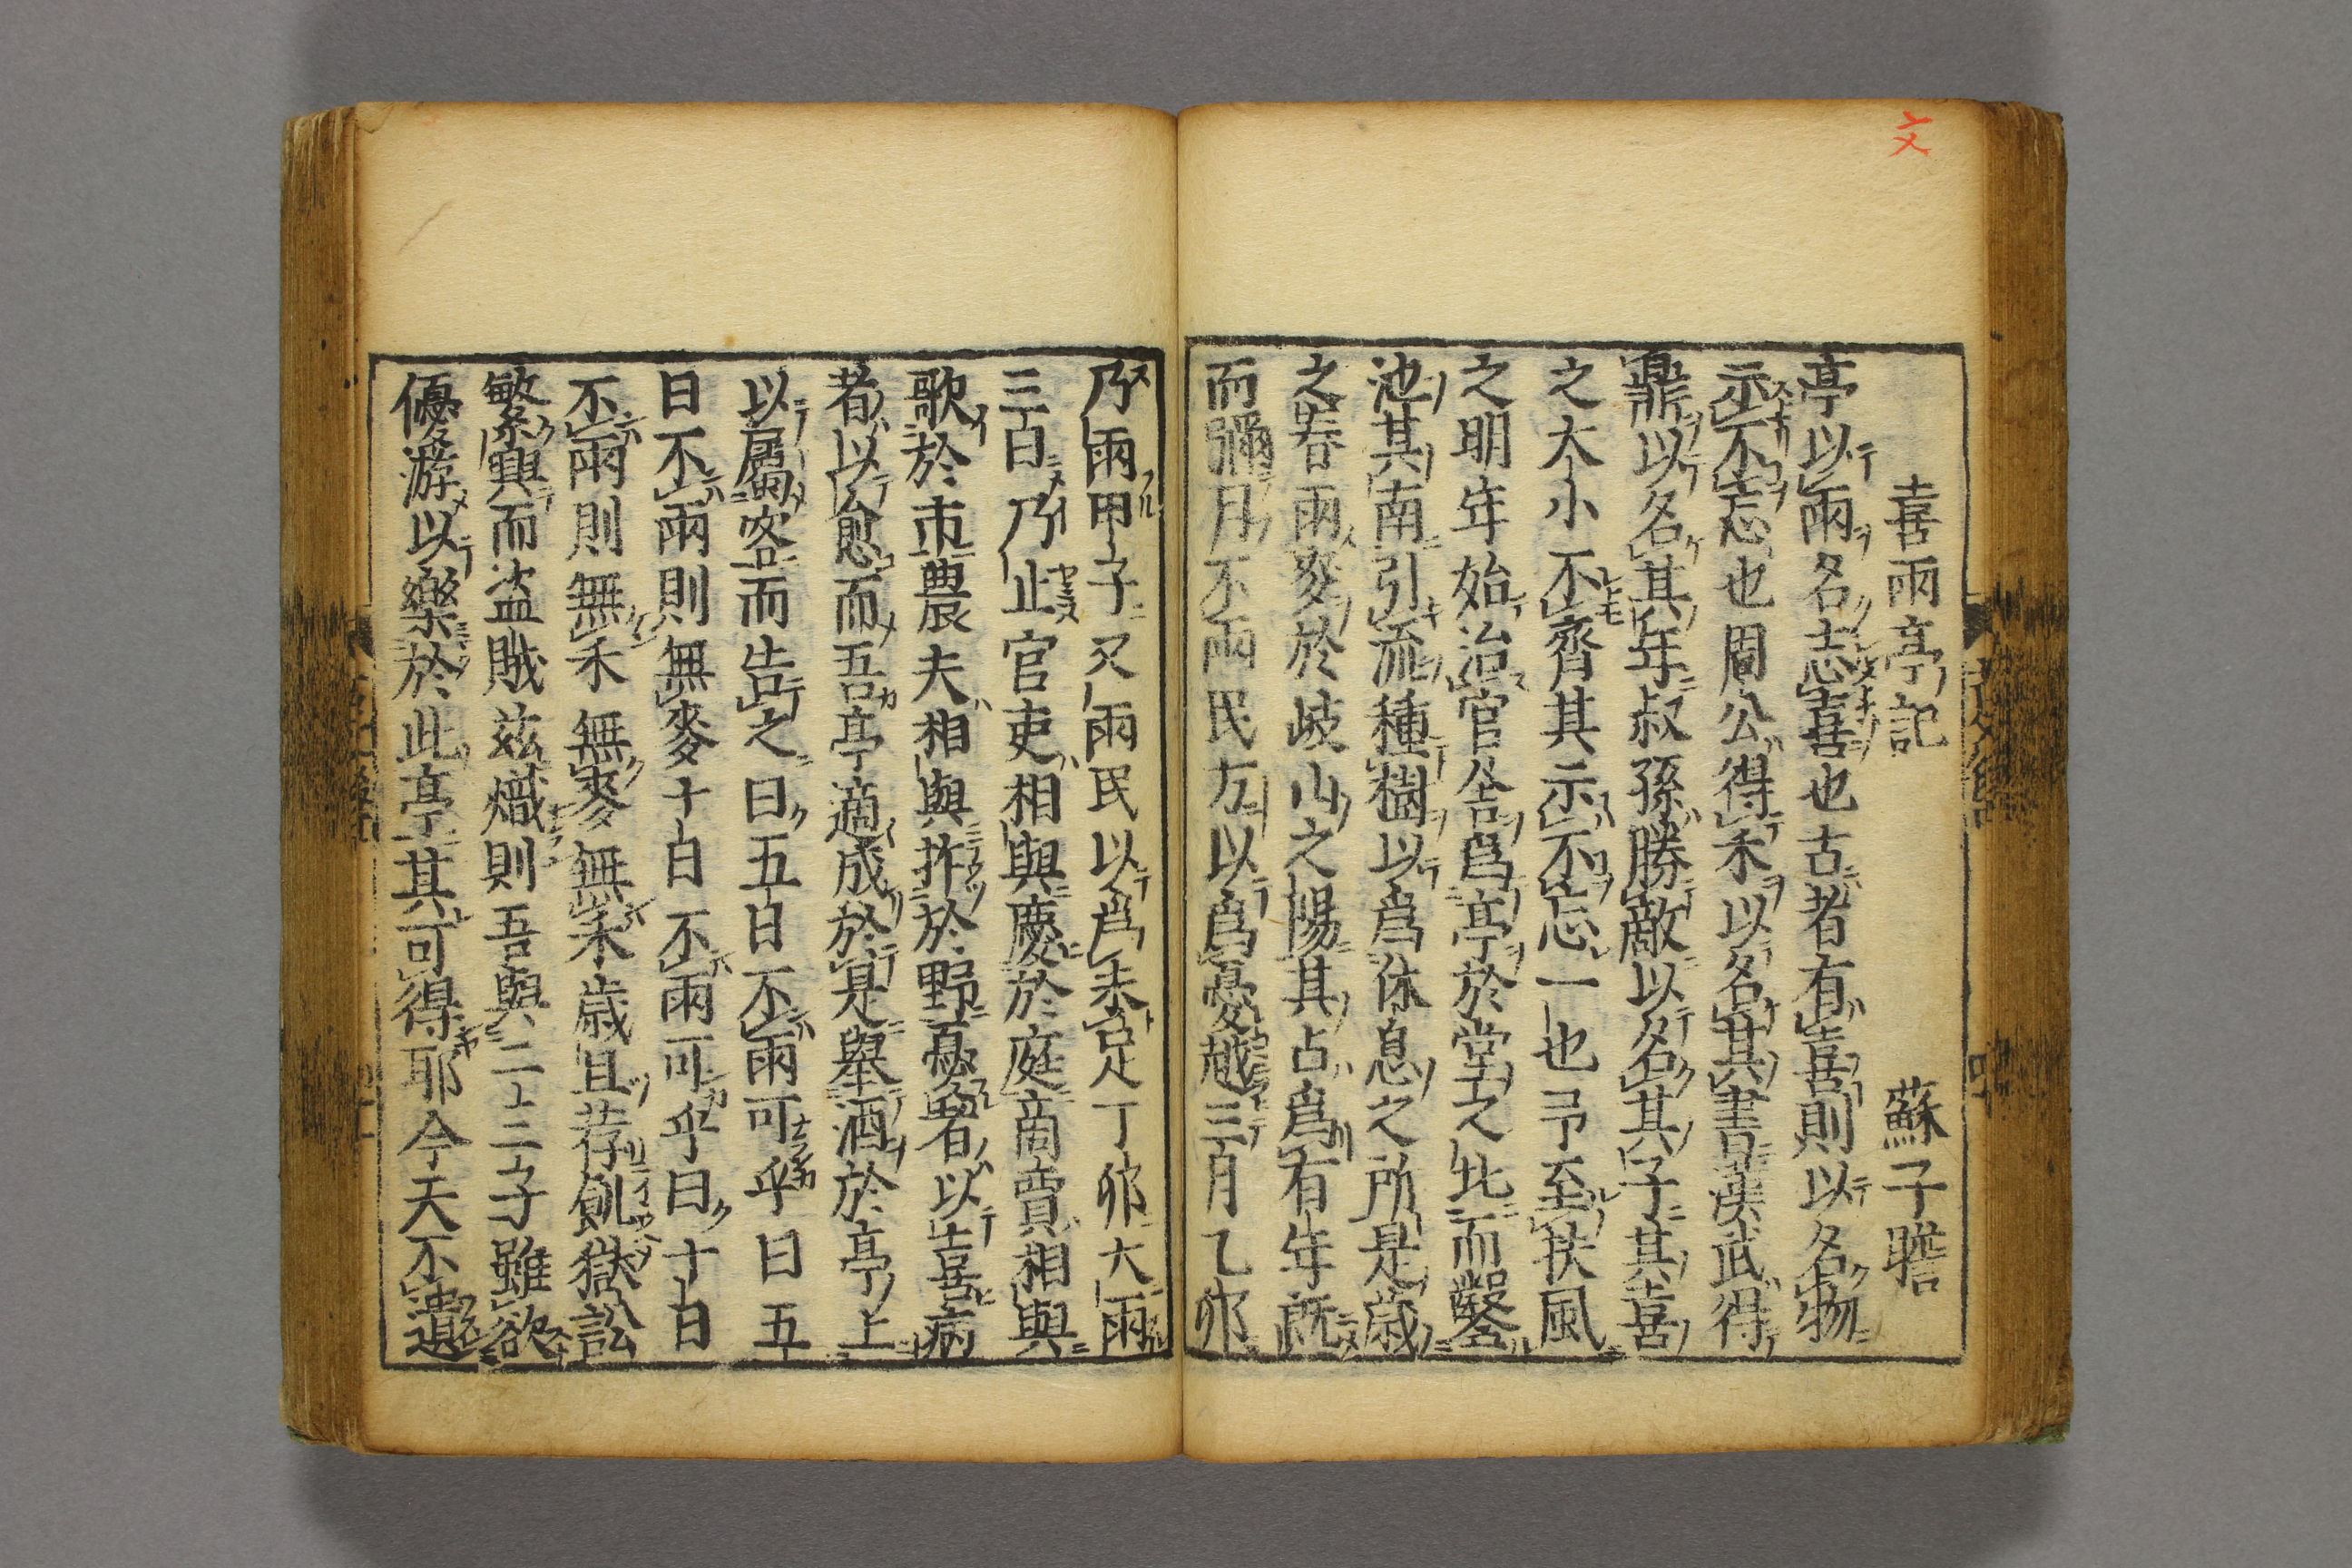 文
喜雨亭記 蘇子瞻
亭以雨名志喜也古者有喜則以名物
示不忘也周公得禾以名其書漢武得
鼎以名其年叔孫勝敵以名其子其喜
之大小不齊其示不忘一也予至扶風
之明年始治官舎爲亭於堂之北而鑿
池其南引流種樹以爲休息之所是歲
之春雨麥於岐山之陽其占爲有年旣
而彌月不雨民方以爲憂越三月乙卯
乃雨甲子又雨民以爲未足丁卯大雨
三日乃止官吏相與慶於庭商賈相與
歌於市農夫相與抃於野憂者以喜病
者以愈而吾亭適成於是舉酒於亭上
以屬客而告之曰五日不雨可乎曰五
日不雨則無麥十日不雨可乎曰十日
不雨則無禾無麥無禾歲且荐飢獄訟
繁興而盗賊玆熾則吾與二三子雖欲
優游以樂於此亭其可得耶今天不遺